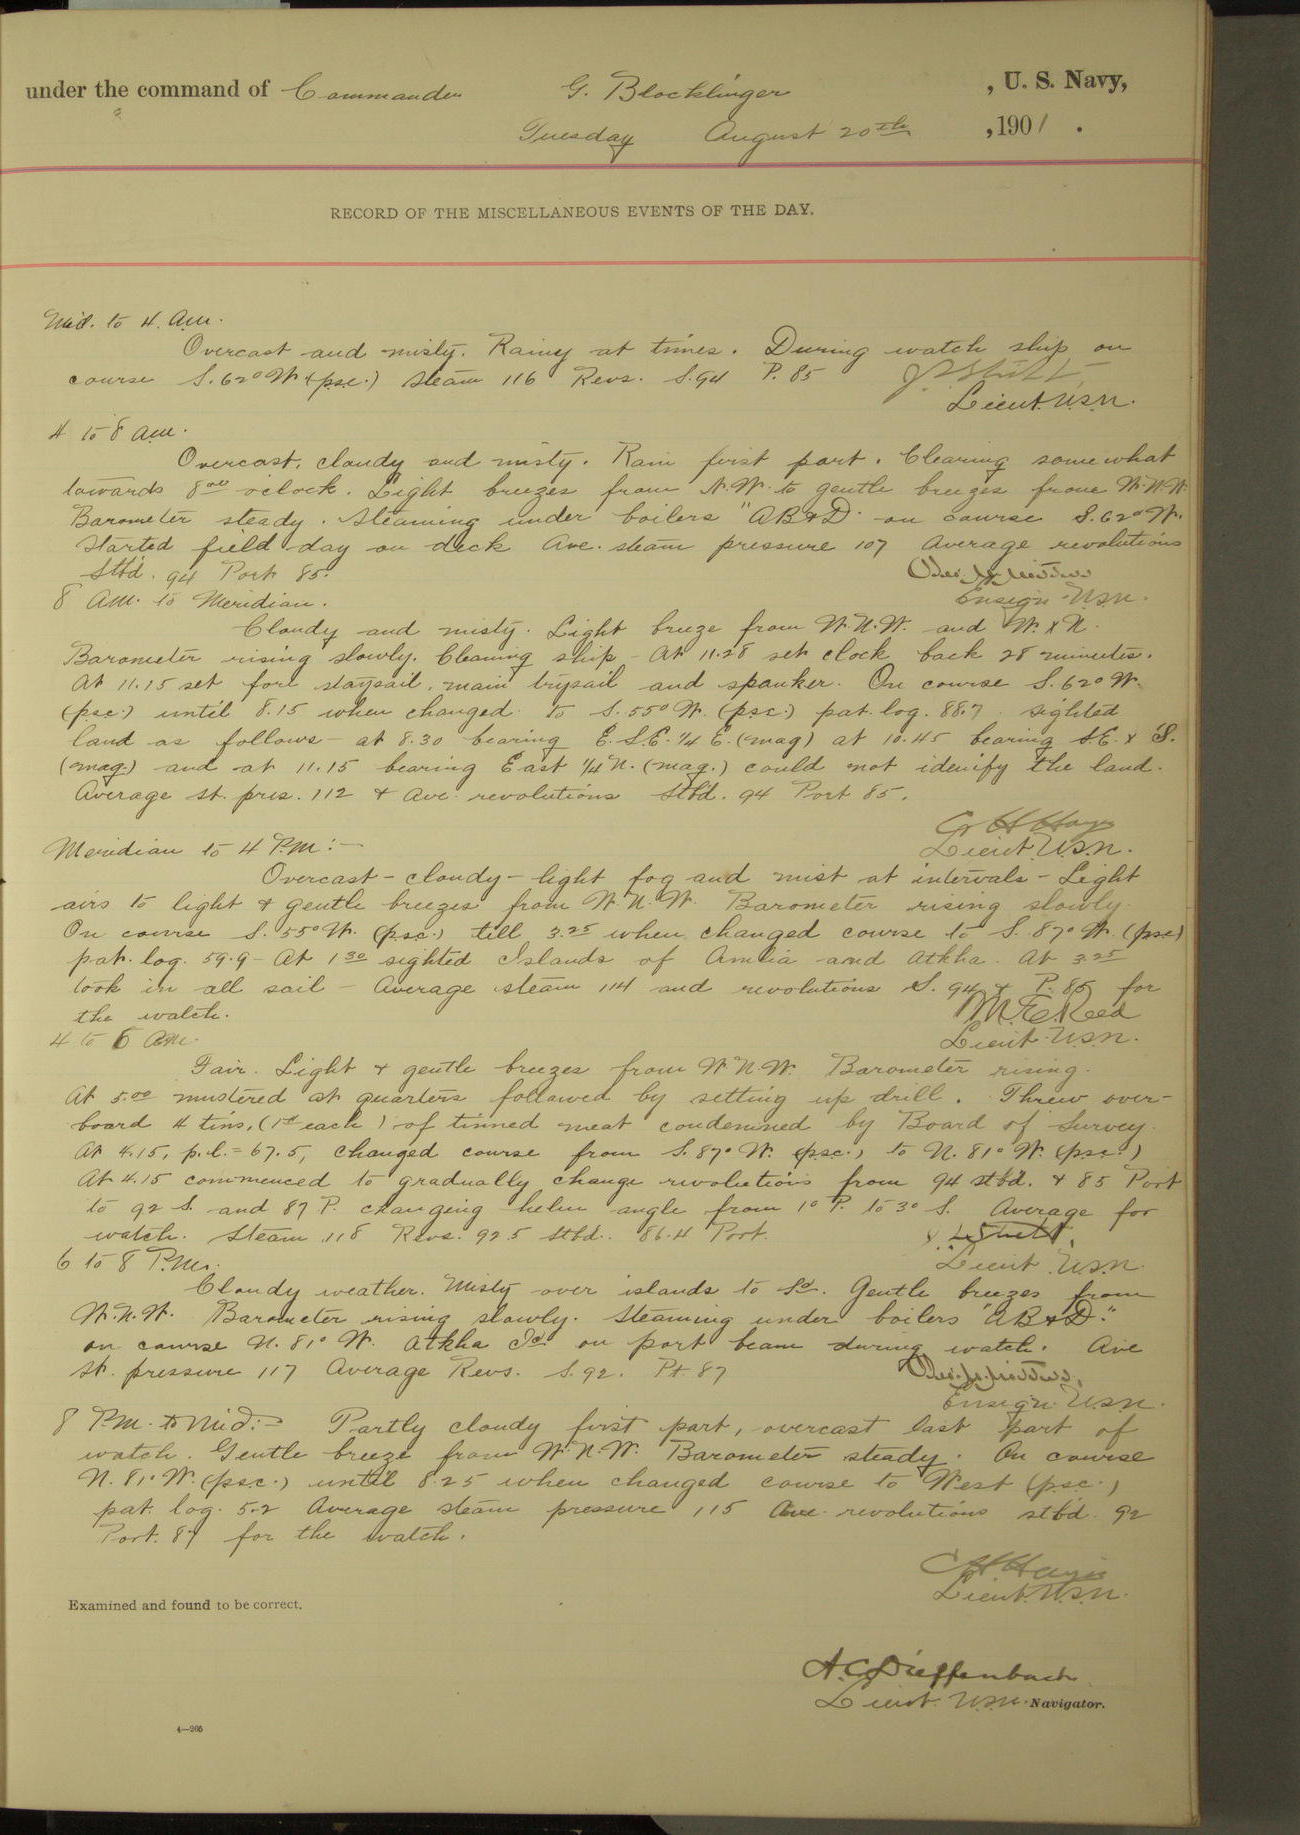 under the command of Commander G. Blocklinger, U. S. Navy,
Tuesday August 20th, 1901.
RECORD OF THE MISCELLANEOUS EVENTS OF THE DAY.
Mid. to 4. A.M.
Overcast and misty. Rainy at times. During watch ship on
course S. 62° W. (p.s.c.) Steam 116 Revs. S. 94 P. 85
Lieut. U.S.N.
4 to 8 A.M.
Overcast, cloudy and misty. Rain first part. Clearing somewhat
towards 8.00 o'clock. Light breezes from N.W. to gentle breezes from W.N.W.
Barometer steady. Steaming under boilers "AB&D" on course S. 62° W.
Started field day on deck Ave. steam pressure 107 Average revolutions
Stbd. 94 Port 85.
Ensign U.S.N.
8 A.M. to Meridian.
Cloudy and misty. Light breeze from W.N.W. and W. x N.
Barometer rising slowly. Cleaning ship - At 11.28 set clock back 28 minutes.
At 11.15 set fore staysail, main trysail and spanker. On course S. 62° W.
(psc.) until 8.15 when changed to S. 55° W. (p.s.c.) pat. log. 88.7. sighted
land as follows - at 8.30 bearing E.S.E. 1/4 E. (mag) at 10.45 bearing S.E. x S.
(mag.) and at 11.15 bearing East 1/4 N. (mag.) could not idenify the land.
Average st. pres. 112 & Ave. revolutions Stbd. 94 Port 85.
Lieut. U.S.N.
Meridian to 4 P.M:-
Overcast - cloudy - light fog and mist at intervals - Light
airs to light & gentle breezes from W.N.W. Barometer rising slowly.
On course S. 55° W. (p.s.c.) till 3.25 when changed course to S. 87° W. (psc)
pat. log. 59.9 - At 1 30 sighted Islands of Amlia and Atkha. At 3.25
took in all sail - Average steam 114 and revolutions S. 94 & P. 85 for
the watch.
M. E. Reed
Lieut. U.S.N.
4 to 6
Fair. Light & gentle breezes from W.N.W. Barometer rising.
At 5.00 mustered at quarters followed by setting up drill. Threw over-
board 4 tins, each) of tinned meat condemned by Board of Survey.
At 4.15, p.l. = 67.5, changed course from S. 87° W. (p.s.c.) to N. 81° W. (p.s.c.)
At 4.15 commenced to gradually change revolutions from 94 stbd. & 85 Port
to 92 S. and 87 P. changing helm angle from 1° P. to 3° S. Average for
watch. Steam 118 Revs. 92.5 Stbd. 86.4 Port.
Lieut. U.S.N.
6 to 8 P.M.
Cloudy weather. Misty over islands to Sd. Gentle breezes from
W.N.W. Barometer rising slowly. Steaming under boilers "AB&D."
on course N. 81° W. Atkha Id. on port beam during watch. Ave
st. pressure 117 Average Revs. S. 92. Pt. 87
Ensign U.S.N.
8 P.M. to Mid:- Partly cloudy first part, overcast last part of
watch. Gentle breeze from W.N.W. Barometer steady. On course
N. 81° W. (p.s.c.) until 8.25 when changed course to West (p.s.c.)
pat. log. 5.2 Average steam pressure 115 Ave. revolutions stbd. 92
Port. 87 for the watch.
Lieut. U.S.N.
Examined and found to be correct.
A. C. Dieffenbach
Lieut. U.S.N. Navigator.
4—205